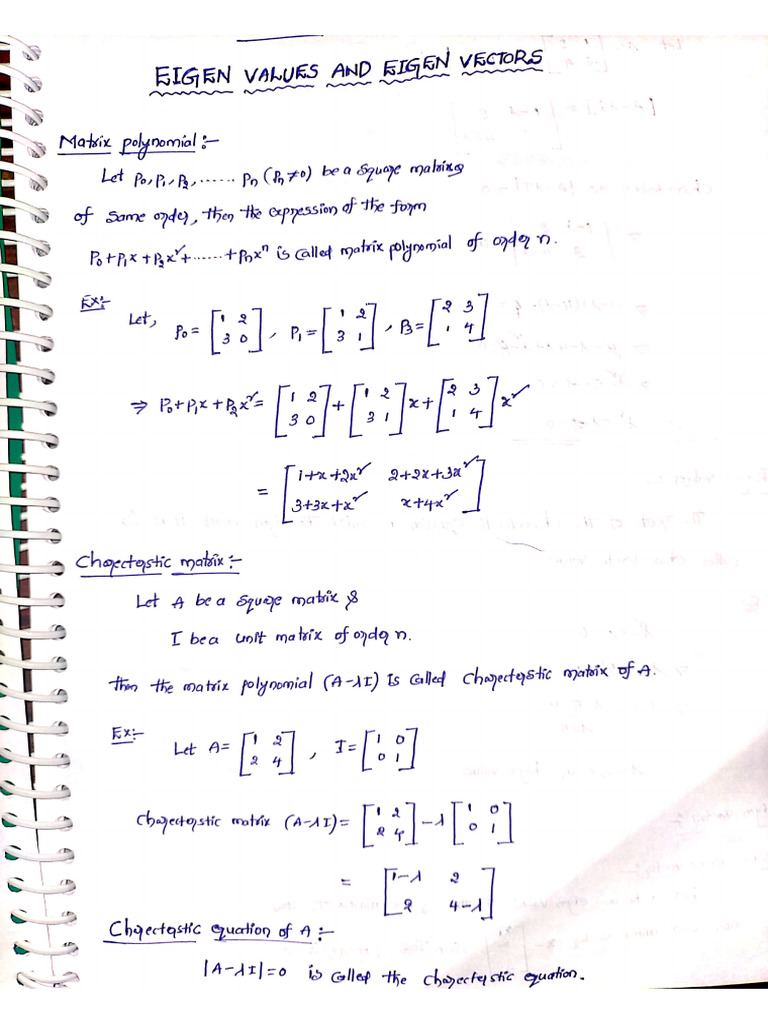 EIGEN VALUES AND EIGEN VECTORS
Matrix polynomial:-
Let P₀, P₁, P₂, ...... Pn (Pn ≠ 0) be a square matrixs
of same order, then the expression of the form
P₀ + P₁x + P₂x² + ...... + Pnxⁿ is called matrix polynomial of order n.
Ex:-
Let, P₀ = [1 2; 3 0], P₁ = [1 2; 3 1], P₃ = [2 3; 1 4]
⇒ P₀ + P₁x + P₂x² = [1 2; 3 0] + [1 2; 3 1] x + [2 3; 1 4] x²
= [1+x+2x² 2+2x+3x²; 3+3x+x² x+4x²]
Charecterstic matrix:-
Let A be a square matrix &
I be a unit matrix of order n.
then the matrix polynomial (A-λI) is called charecterstic matrix of A.
Ex:-
Let A = [1 2; 2 4], I = [1 0; 0 1]
Charecterstic matrix (A-λI) = [1 2; 2 4] - λ [1 0; 0 1]
= [1-λ 2; 2 4-λ]
Charecterstic equation of A:-
|A-λI| = 0 is called the charecterstic equation.